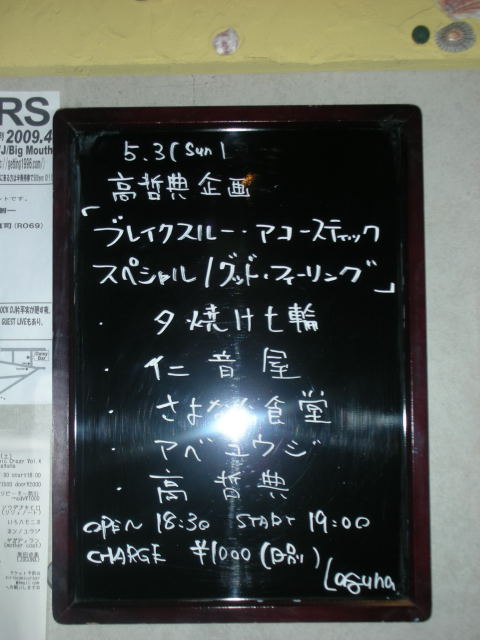 RS
2009.4
/J/Big Mouth
5.3(Sun)
高哲典企画
「ブレイクスルー・アコースティック
スペシャル/グッド・フィーリング」
・夕焼け七輪
・仁音屋
・さよなら食堂
・アベユウジ
・高哲典
OPEN 18:30 START 19:00
CHARGE ¥1000(D別)
Laguna
GUEST LIVEもあり。